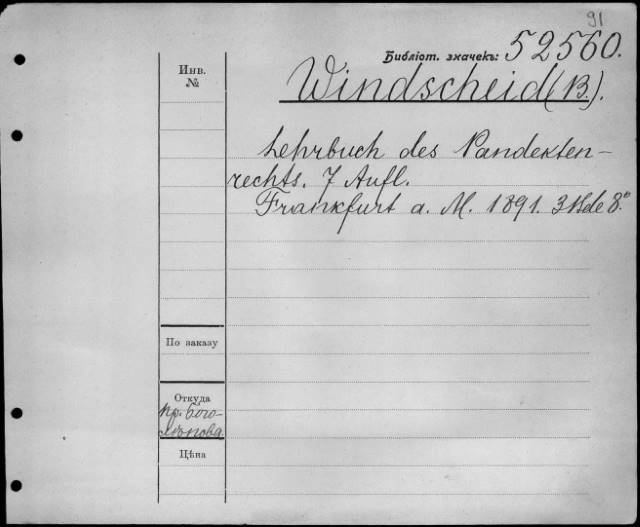 91
Библіот. значекъ: 52560.
Инв.
№
Windscheid (B.).
Lehrbuch des Pandekten-
rechts. 7 Aufl.
Frankfurt a. M. 1891. 3 Bde 8.º
По заказу
Откуда
Пр. Бого-
лѣпова
Цѣна